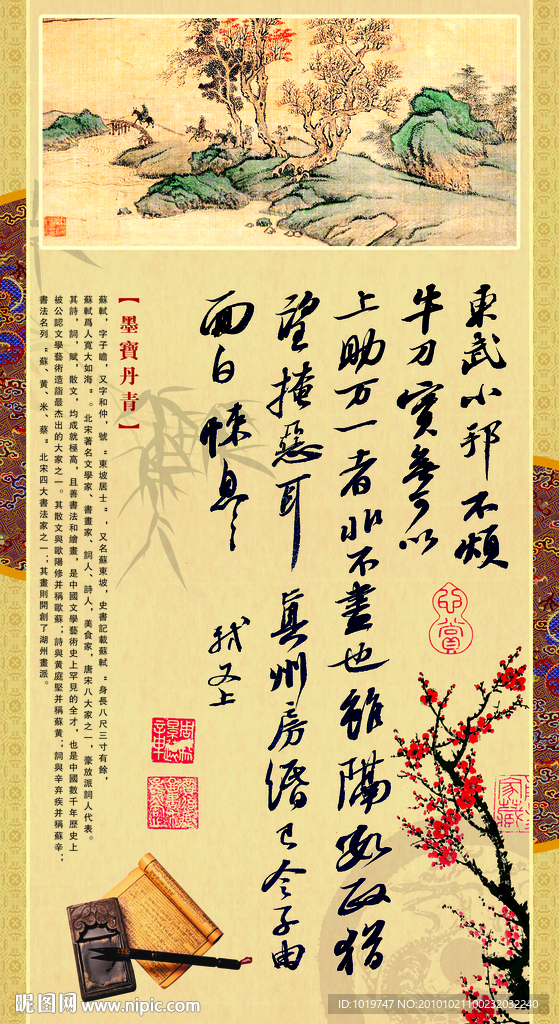 東武小邦不煩
牛刀實無可以
上助万一者非不盡也雖隔數政猶
望掩惡耳 真州房緡已令子由
面白悚息〻
軾又上
【墨寶丹青】
蘇軾,字子瞻,又字和仲,號"東坡居士",又名蘇東坡,史書記載蘇軾"身長八尺三寸有餘,
蘇軾爲人寬大如海"。北宋著名文學家、書畫家、詞人、詩人,美食家,唐宋八大家之一,豪放派詞人代表。
其詩,詞,賦,散文,均成就極高,且善書法和繪畫,是中國文學藝術史上罕見的全才,也是中國數千年歷史上
被公認文學藝術造詣最杰出的大家之一。其散文與歐陽修并稱歐蘇;詩與黃庭堅并稱蘇黃;詞與辛弃疾并稱蘇辛;
書法名列"蘇、黃、米、蔡"北宋四大書法家之一;其畫則開創了湖州畫派。
家藏
昵图网 www.nipic.com
ID:1019747 NO:20101021100232032240